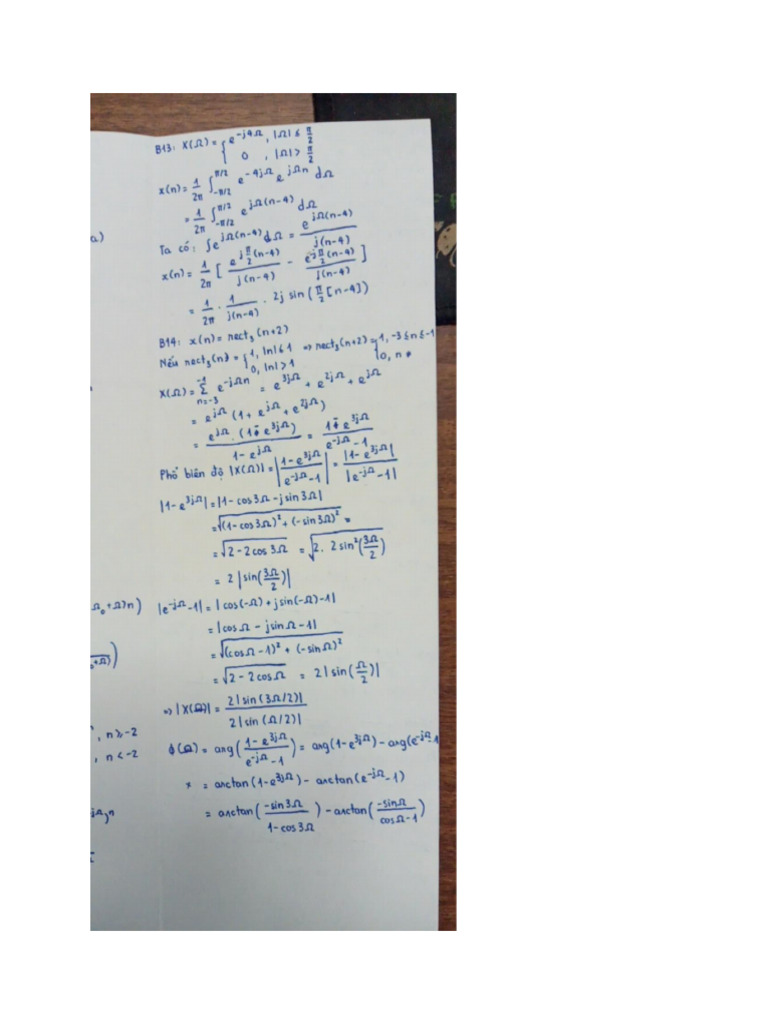 a)
Ω₀+Ω)n)
₀+Ω)
, n ≥ -2
, n < -2
jΩ₁n
B13: X(Ω) = { e^{-j4Ω} , |Ω| ≤ π/2
0 , |Ω| > π/2
x(n) = 1/2π ∫_{-π/2}^{π/2} e^{-4jΩ} e^{jΩn} dΩ
= 1/2π ∫_{-π/2}^{π/2} e^{jΩ(n-4)} dΩ
Ta có: ∫e^{jΩ(n-4)} dΩ = e^{jΩ(n-4)} / j(n-4)
x(n) = 1/2π [ e^{j π/2 (n-4)} / j(n-4) - e^{-j π/2 (n-4)} / j(n-4) ]
= 1/2π · 1/j(n-4) · 2j sin(π/2 [n-4])
B14: x(n) = rect₃(n+2)
Nếu rect₃(n) = { 1, |n| ≤ 1 ⇒ rect₃(n+2) = { 1, -3 ≤ n ≤ -1
0, |n| > 1 0, n ≠
X(Ω) = Σ_{n=-3}^{-1} e^{-jΩn} = e^{3jΩ} + e^{2jΩ} + e^{jΩ}
= e^{jΩ} (1 + e^{jΩ} + e^{2jΩ})
= e^{jΩ} · (1 - e^{3jΩ}) / 1 - e^{jΩ} = 1 - e^{3jΩ} / e^{-jΩ} - 1
Phổ biên độ |X(Ω)| = |1-e^{3jΩ} / e^{-jΩ} - 1| = |1-e^{3jΩ}| / |e^{-jΩ} - 1|
|1-e^{3jΩ}| = |1-cos3Ω - jsin3Ω|
= √((1-cos3Ω)² + (-sin3Ω)²) =
= √(2 - 2cos3Ω) = √(2. 2sin²(3Ω/2))
= 2 |sin(3Ω/2)|
|e^{-jΩ} - 1| = |cos(-Ω) + jsin(-Ω) - 1|
= |cosΩ - jsinΩ - 1|
= √((cosΩ - 1)² + (-sinΩ)²)
= √(2 - 2cosΩ) = 2|sin(Ω/2)|
⇒ |X(Ω)| = 2|sin(3Ω/2)| / 2|sin(Ω/2)|
ϕ(Ω) = arg(1-e^{3jΩ} / e^{-jΩ} - 1) = arg(1-e^{3jΩ}) - arg(e^{-jΩ} - 1
= arctan(1-e^{3jΩ}) - arctan(e^{-jΩ} - 1)
= arctan(-sin3Ω / 1-cos3Ω) - arctan(-sinΩ / cosΩ-1)